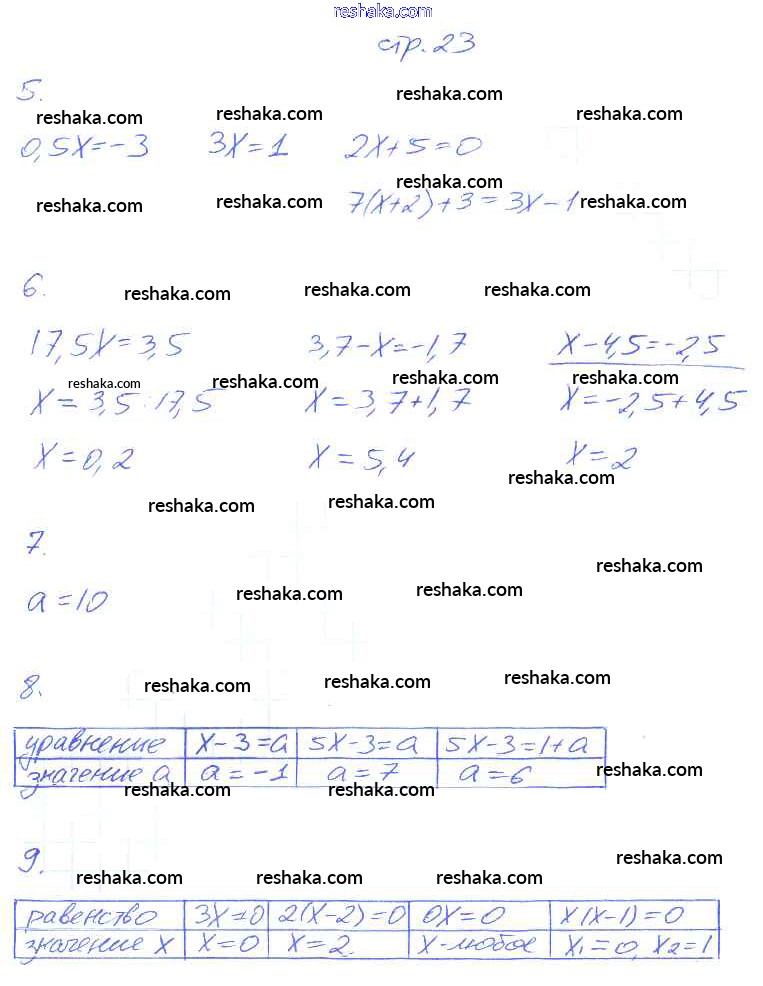 reshaka.com
стр. 23
5.
reshaka.com reshaka.com reshaka.com reshaka.com
0,5x=-3 3x=1 2x+5=0
reshaka.com reshaka.com reshaka.com reshaka.com
7(x+2)+3=3x-1
6.
reshaka.com reshaka.com reshaka.com
17,5x=3,5 3,7-x=-1,7 x-4,5=-2,5
reshaka.com reshaka.com reshaka.com reshaka.com
x=3,5:17,5 x=3,7+1,7 x=-2,5+4,5
x=0,2 x=5,4 x=2
reshaka.com reshaka.com reshaka.com
7.
reshaka.com reshaka.com reshaka.com
a=10
8.
reshaka.com reshaka.com reshaka.com
уравнение x-3=a 5x-3=a 5x-3=1+a
значение a a=-1 a=7 a=6
reshaka.com reshaka.com reshaka.com
9.
reshaka.com reshaka.com reshaka.com reshaka.com
равенство 3x=0 2(x-2)=0 0x=0 x(x-1)=0
значение x x=0 x=2 x-любое x₁=0, x₂=1